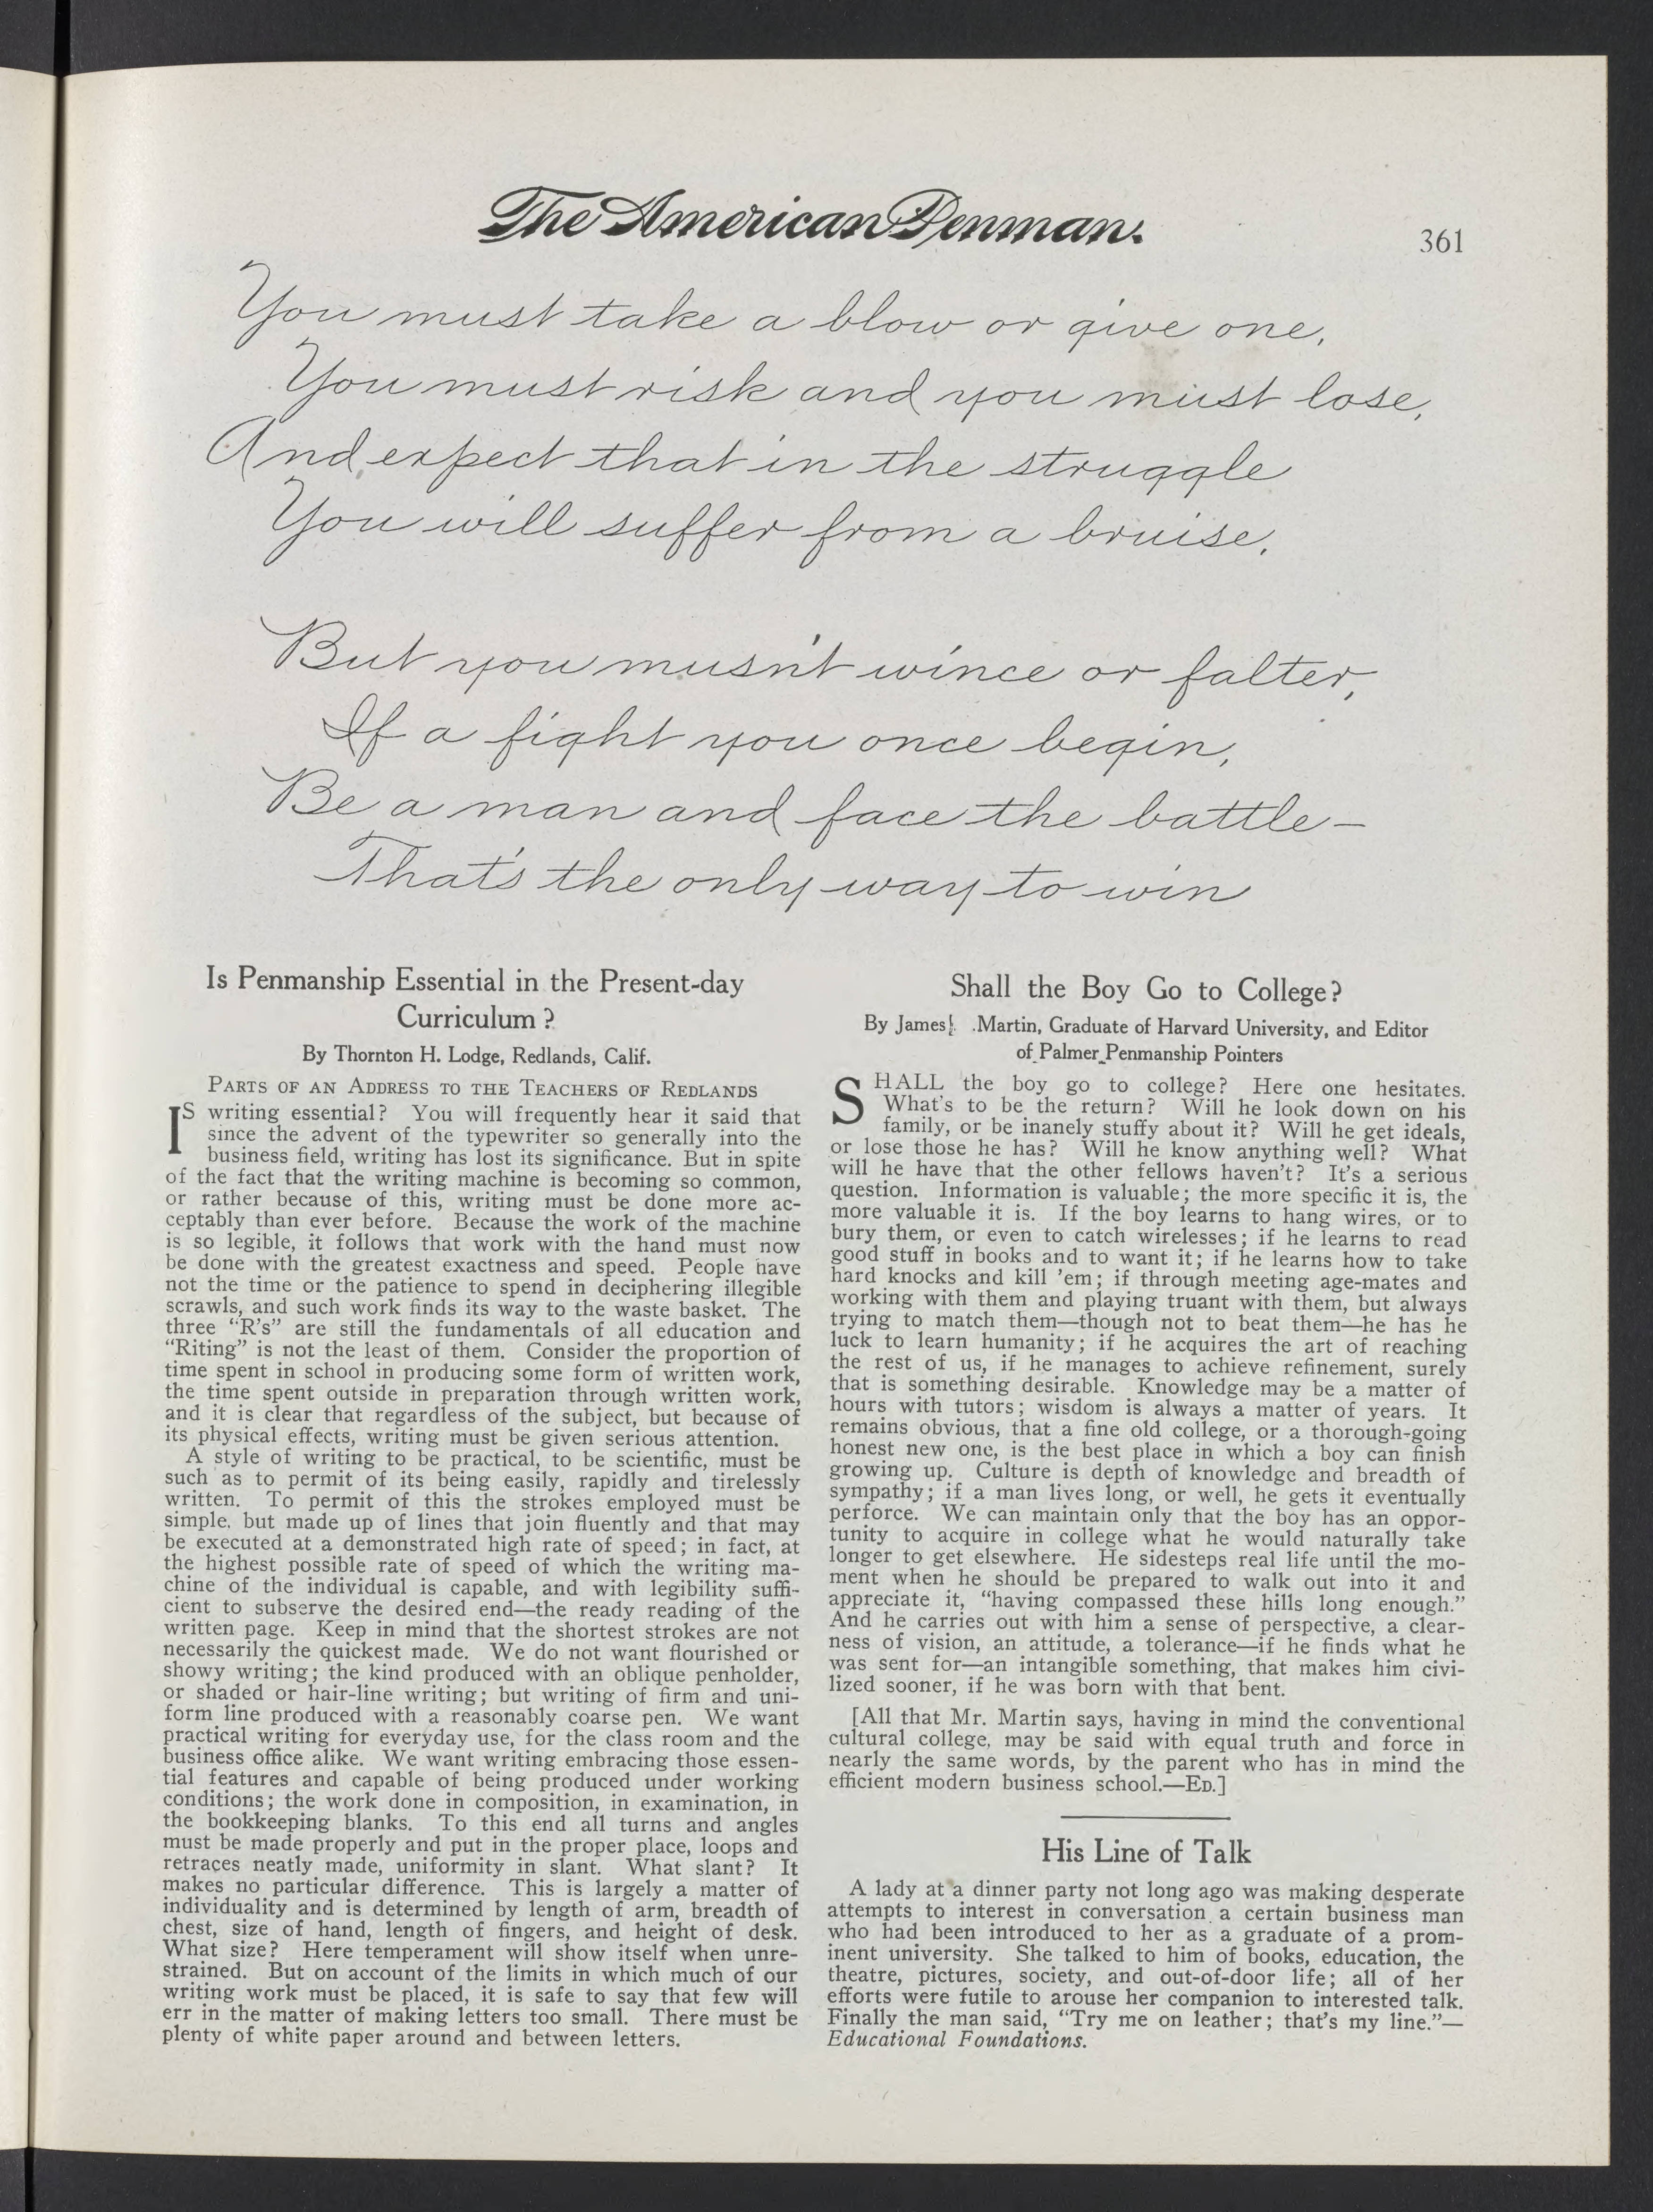 The American Penman.
361
You must take a blow or give one,
You must risk and you must lose,
And expect that in the struggle
You will suffer from a bruise.
But you musn't wince or falter,
If a fight you once begin,
Be a man and face the battle—
That's the only way to win
Is Penmanship Essential in the Present-day
Curriculum?
By Thornton H. Lodge, Redlands, Calif.
PARTS OF AN ADDRESS TO THE TEACHERS OF REDLANDS
IS writing essential? You will frequently hear it said that
since the advent of the typewriter so generally into the
business field, writing has lost its significance. But in spite
of the fact that the writing machine is becoming so common,
or rather because of this, writing must be done more ac-
ceptably than ever before. Because the work of the machine
is so legible, it follows that work with the hand must now
be done with the greatest exactness and speed. People have
not the time or the patience to spend in deciphering illegible
scrawls, and such work finds its way to the waste basket. The
three "R's" are still the fundamentals of all education and
"Riting" is not the least of them. Consider the proportion of
time spent in school in producing some form of written work,
the time spent outside in preparation through written work,
and it is clear that regardless of the subject, but because of
its physical effects, writing must be given serious attention.
A style of writing to be practical, to be scientific, must be
such as to permit of its being easily, rapidly and tirelessly
written. To permit of this the strokes employed must be
simple. but made up of lines that join fluently and that may
be executed at a demonstrated high rate of speed; in fact, at
the highest possible rate of speed of which the writing ma-
chine of the individual is capable, and with legibility suffi-
cient to subserve the desired end—the ready reading of the
written page. Keep in mind that the shortest strokes are not
necessarily the quickest made. We do not want flourished or
showy writing; the kind produced with an oblique penholder,
or shaded or hair-line writing; but writing of firm and uni-
form line produced with a reasonably coarse pen. We want
practical writing for everyday use, for the class room and the
business office alike. We want writing embracing those essen-
tial features and capable of being produced under working
conditions; the work done in composition, in examination, in
the bookkeeping blanks. To this end all turns and angles
must be made properly and put in the proper place, loops and
retraces neatly made, uniformity in slant. What slant? It
makes no particular difference. This is largely a matter of
individuality and is determined by length of arm, breadth of
chest, size of hand, length of fingers, and height of desk.
What size? Here temperament will show itself when unre-
strained. But on account of the limits in which much of our
writing work must be placed, it is safe to say that few will
err in the matter of making letters too small. There must be
plenty of white paper around and between letters.
Shall the Boy Go to College?
By James Martin, Graduate of Harvard University, and Editor
of Palmer Penmanship Pointers
SHALL the boy go to college? Here one hesitates.
What's to be the return? Will he look down on his
family, or be inanely stuffy about it? Will he get ideals,
or lose those he has? Will he know anything well? What
will he have that the other fellows haven't? It's a serious
question. Information is valuable; the more specific it is, the
more valuable it is. If the boy learns to hang wires, or to
bury them, or even to catch wirelesses; if he learns to read
good stuff in books and to want it; if he learns how to take
hard knocks and kill 'em; if through meeting age-mates and
working with them and playing truant with them, but always
trying to match them—though not to beat them—he has he
luck to learn humanity; if he acquires the art of reaching
the rest of us, if he manages to achieve refinement, surely
that is something desirable. Knowledge may be a matter of
hours with tutors; wisdom is always a matter of years. It
remains obvious, that a fine old college, or a thorough-going
honest new one, is the best place in which a boy can finish
growing up. Culture is depth of knowledge and breadth of
sympathy; if a man lives long, or well, he gets it eventually
perforce. We can maintain only that the boy has an oppor-
tunity to acquire in college what he would naturally take
longer to get elsewhere. He sidesteps real life until the mo-
ment when he should be prepared to walk out into it and
appreciate it, "having compassed these hills long enough."
And he carries out with him a sense of perspective, a clear-
ness of vision, an attitude, a tolerance—if he finds what he
was sent for—an intangible something, that makes him civi-
lized sooner, if he was born with that bent.
[All that Mr. Martin says, having in mind the conventional
cultural college, may be said with equal truth and force in
nearly the same words, by the parent who has in mind the
efficient modern business school.—ED.]
His Line of Talk
A lady at a dinner party not long ago was making desperate
attempts to interest in conversation a certain business man
who had been introduced to her as a graduate of a prom-
inent university. She talked to him of books, education, the
theatre, pictures, society, and out-of-door life; all of her
efforts were futile to arouse her companion to interested talk.
Finally the man said, "Try me on leather; that's my line."—
Educational Foundations.